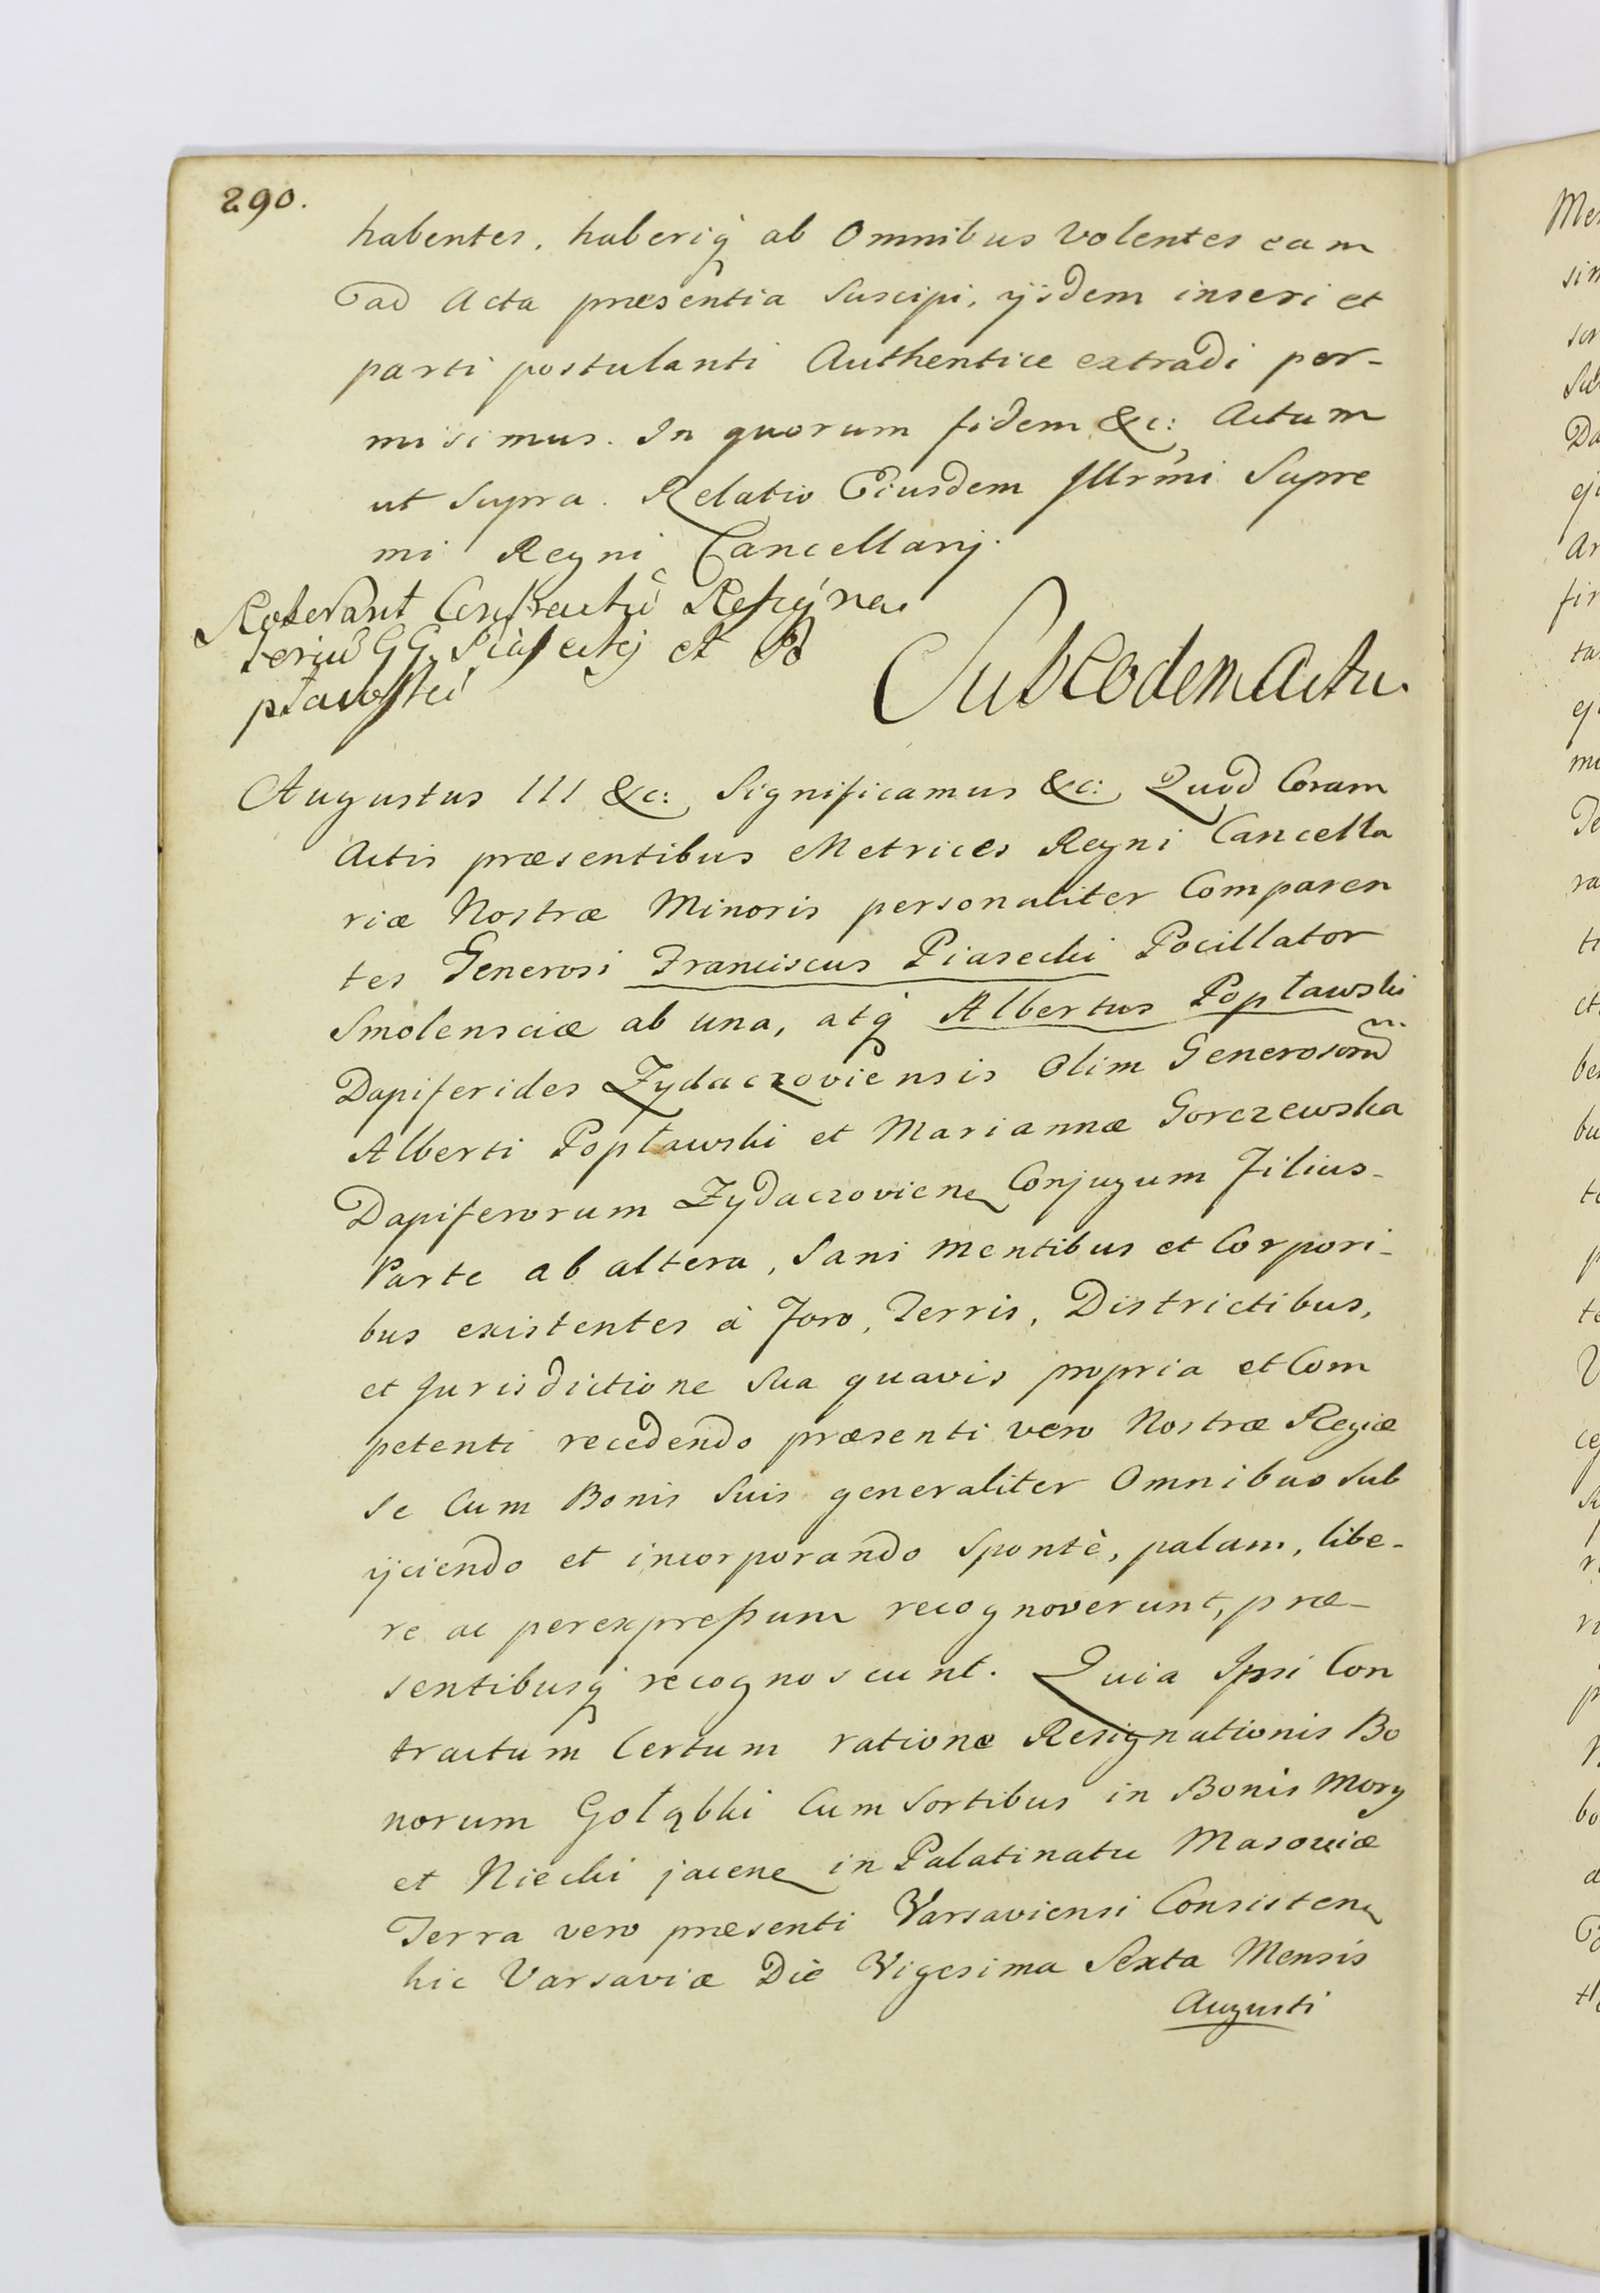 290.
habentes, haberiq́ ab Omnibus Volentes eam
ad Acta præsentia Suscipi, ijsdem inseri et
parti postulanti Authentice extradi per-
misimus. In quorum fidem &c: Actum
ut Supra. Relatio Eiusdem Illrmi Supre
mi Regni Cancellarij.
Roborant Contractũ Resigna
toriũ GG. Piasecki et Po
pławski
Sub Eodem Actu.
Augustus III &c: Significamus &c: Quod Coram
Actis præsentibus Metrices Regni Cancella
riæ Nostræ Minoris personaliter Comparen
tes Generosi Franciscus Piasecki Pocillator
Smolensciæ ab una, atq́ Albertus Popławski
Dapiferides Zydaczoviensis Olim Generosorũ
Alberti Popławski et Mariannæ Gorczewska
Dapiferorum Zydaczovien Conjugum Filius-
Parte ab altera, Sani Mentibus et Corpori-
bus existentes à Foro, Terris, Districtibus,
et Jurisdictione Sua quavis propria et Com
petenti recedendo præsenti vero Nostræ Regiæ
Se Cum Bonis Suis generaliter Omnibus Sub
ijciendo et incorporando Spontè, palam, libe-
re ac perexpressum recognoverunt, præ-
sentibusq́ recognoscunt. Quia Ipsi Con
tractum Certum ratione Resignationis Bo
norum Gołąbki Cum Sortibus in Bonis Mory
et Niecki jacen in Palatinatu Masoviæ
Terra vero præsenti Varsaviensi Consisten
hic Varsaviæ Die Vigesima Sexta Mensis
Augusti